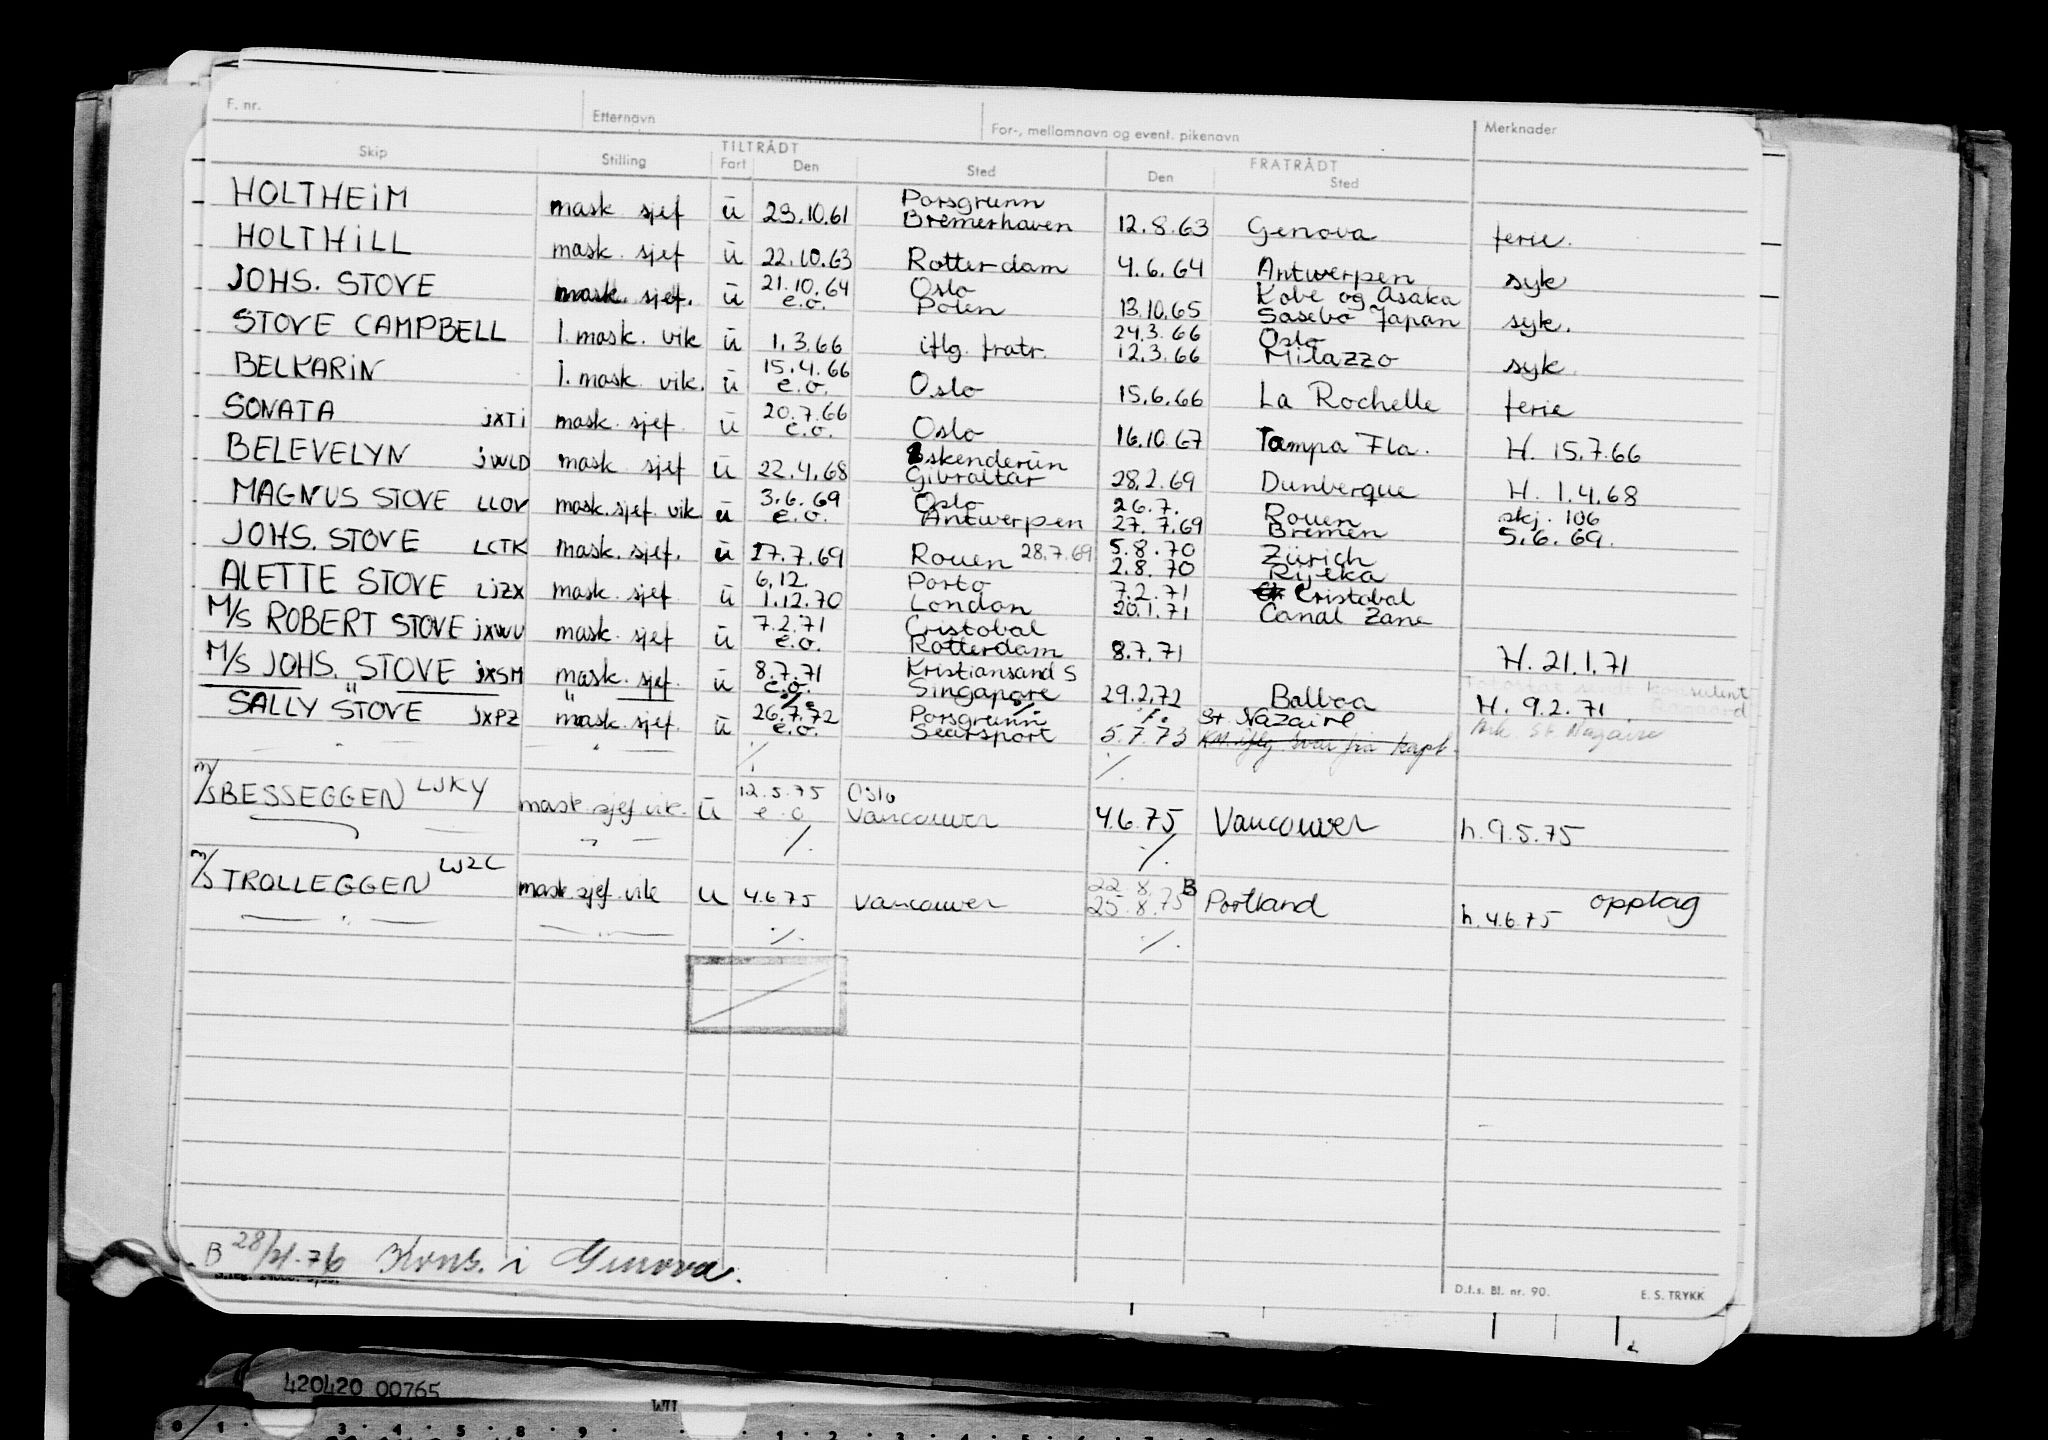 F. nr. Etternavn For-, mellomnavn og event. pikenavn Merknader
Skip Stilling TILTRÅDT Fart Den Sted Den FRATRÅDT Sted
HOLTHEIM mask. sjef ū 23.10.61 Porsgrunn Bremerhaven 12.8.63 Genova ferie.
HOLTHILL mask. sjef ū 22.10.63 Rotterdam 4.6.64 Antwerpen syk
JOHS. STOVE mask. sjef. ū 21.10.64 e.o. Oslo Polen 13.10.65 Kobe og Osaka Sasebo Japan syk.
STOVE CAMPBELL 1. mask. vik ū 1.3.66 iflg. fratr. 24.3.66 12.3.66 Oslo Milazzo syk
BELKARIN 1. mask. vik. ū 15.4.66 e.o. Oslo 15.6.66 La Rochelle ferie
SONATA JXTI mask. sjef. ū 20.7.66 e.o. Oslo 16.10.67 Tampa Fla. H. 15.7.66
BELEVELYN JWLD mask. sjef ū 22.4.68 Iskenderun Gibraltar 28.2.69 Dunberque H. 1.4.68
MAGNUS STOVE LLOV mask. sjef. vik. ū 3.6.69 e.o. Oslo Antwerpen 26.7. 27.7.69 Rouen Bremen skj. 106 5.6.69.
JOHS. STOVE LCTK mask. sjef. ū 27.7.69 Rouen 28.7.69 5.8.70 2.8.70 Zürich Rijeka
ALETTE STOVE LJZX mask. sjef ū 6.12. 1.12.70 Porto London 7.2.71 20.1.71 Cristobal Canal Zane
M/S ROBERT STOVE JXWU mask. sjef ū 7.2.71 e.o. Cristobal Rotterdam 8.7.71 H. 21.1.71
M/S JOHS. STOVE JXSM mask. sjef. ū 8.7.71 e.o. Kristiansand S Singapore 29.2.72 Balboa H. 9.2.71
SALLY STOVE JXPZ mask. sjef. ū 26.7.72 e.o. Porsgrunn Searsport 5.7.73 St. Nazaire
M/S BESSEGGEN LJKY mask. sjef vik. ū 12.5.75 e.o Oslo Vancouver 4.6.75 Vancouver h. 9.5.75
M/S TROLLEGGEN LJZC mask. sjef. vik u 4.6.75 Vancouver 22.8. 25.8.75 B Portland h. 4.6.75 opplag
B 28/ Kons. i Genova.
D.f.s. Bl. nr. 90. E. S. TRYKK
420420 00765